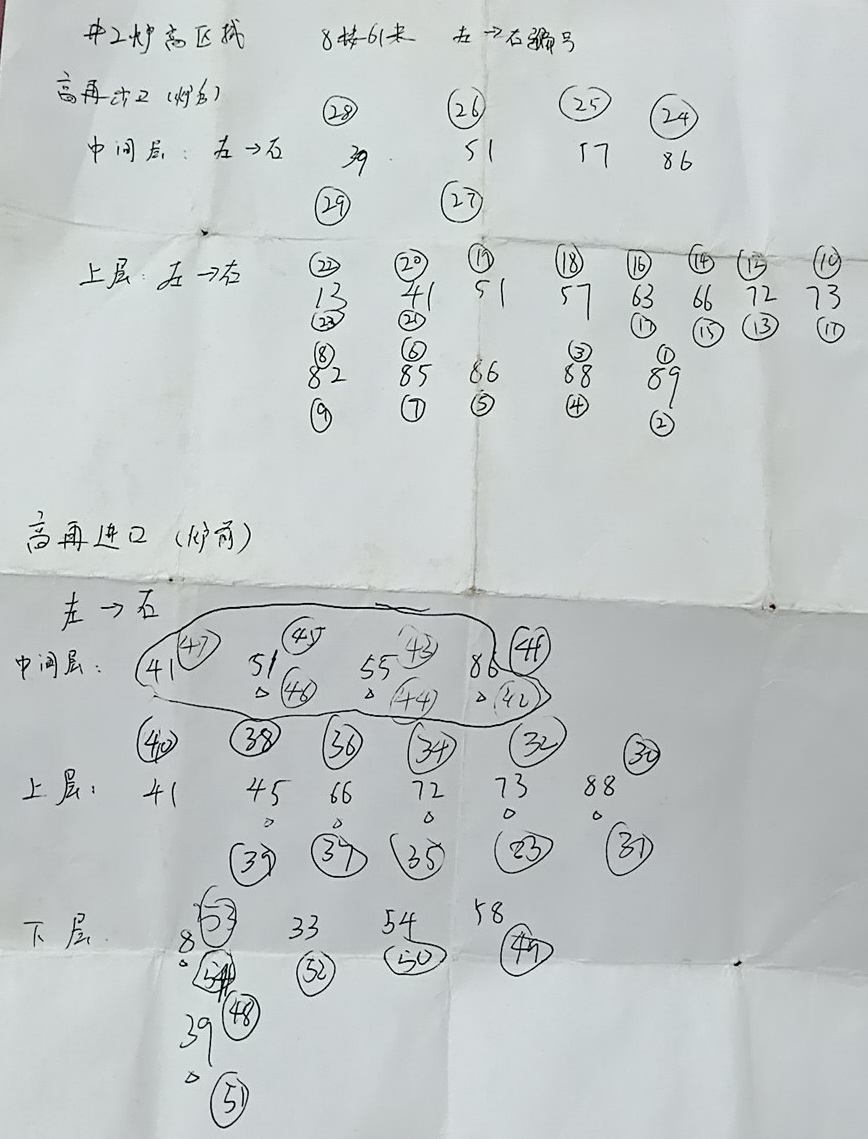 #2炉高区域 8楼61米 左→右编号
高再出口(炉后)
㉘ ㉖ ㉕ ㉔
中间层: 左→右 39 51 57 86
㉙ ㉗
上层: 左→右 ㉒ ⑳ ⑲ ⑱ ⑯ ⑭ ⑫ ⑩
13 41 51 57 63 66 72 73
㉓ ㉑ ⑰ ⑮ ⑬ ⑪
⑧ ⑥ ③ ①
82 85 86 88 89
⑨ ⑦ ⑤ ④ ②
高再进口(炉前)
左→右
㊼ ㊺ ㊸ ㊶
中间层: 41 51 55 86
㊻ ㊹ ㊷
㊵ ㊳ ㊱ ㉞ ㉜ ㉚
上层: 41 45 66 72 73 88
㊴ ㊲ ㉟ ㉓ ㉛
下层 8 (53) 33 54 58
(54) (52) ㊿ ㊾
39 ㊽
(51)